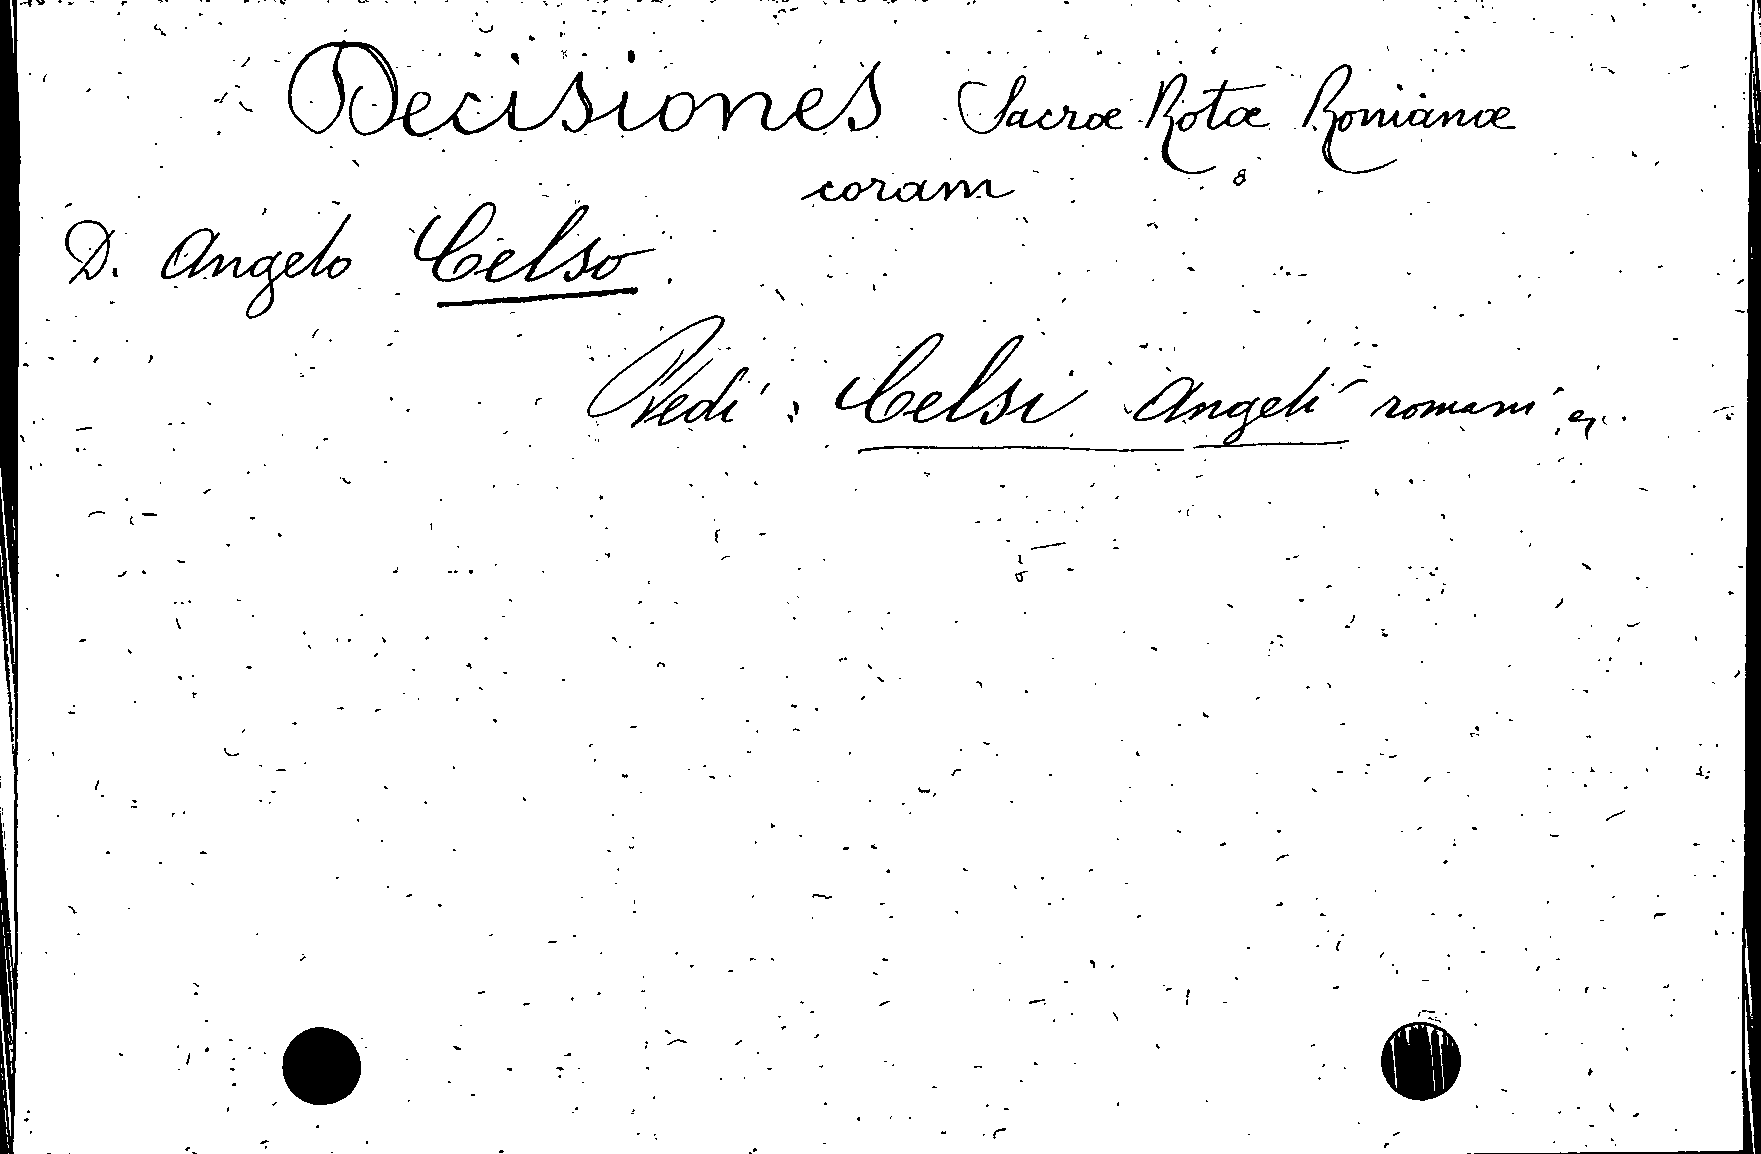 Decisiones Sacræ Rotæ Romanæ
coram
D. Angelo Celso
Vedi: Celsi Angeli romani